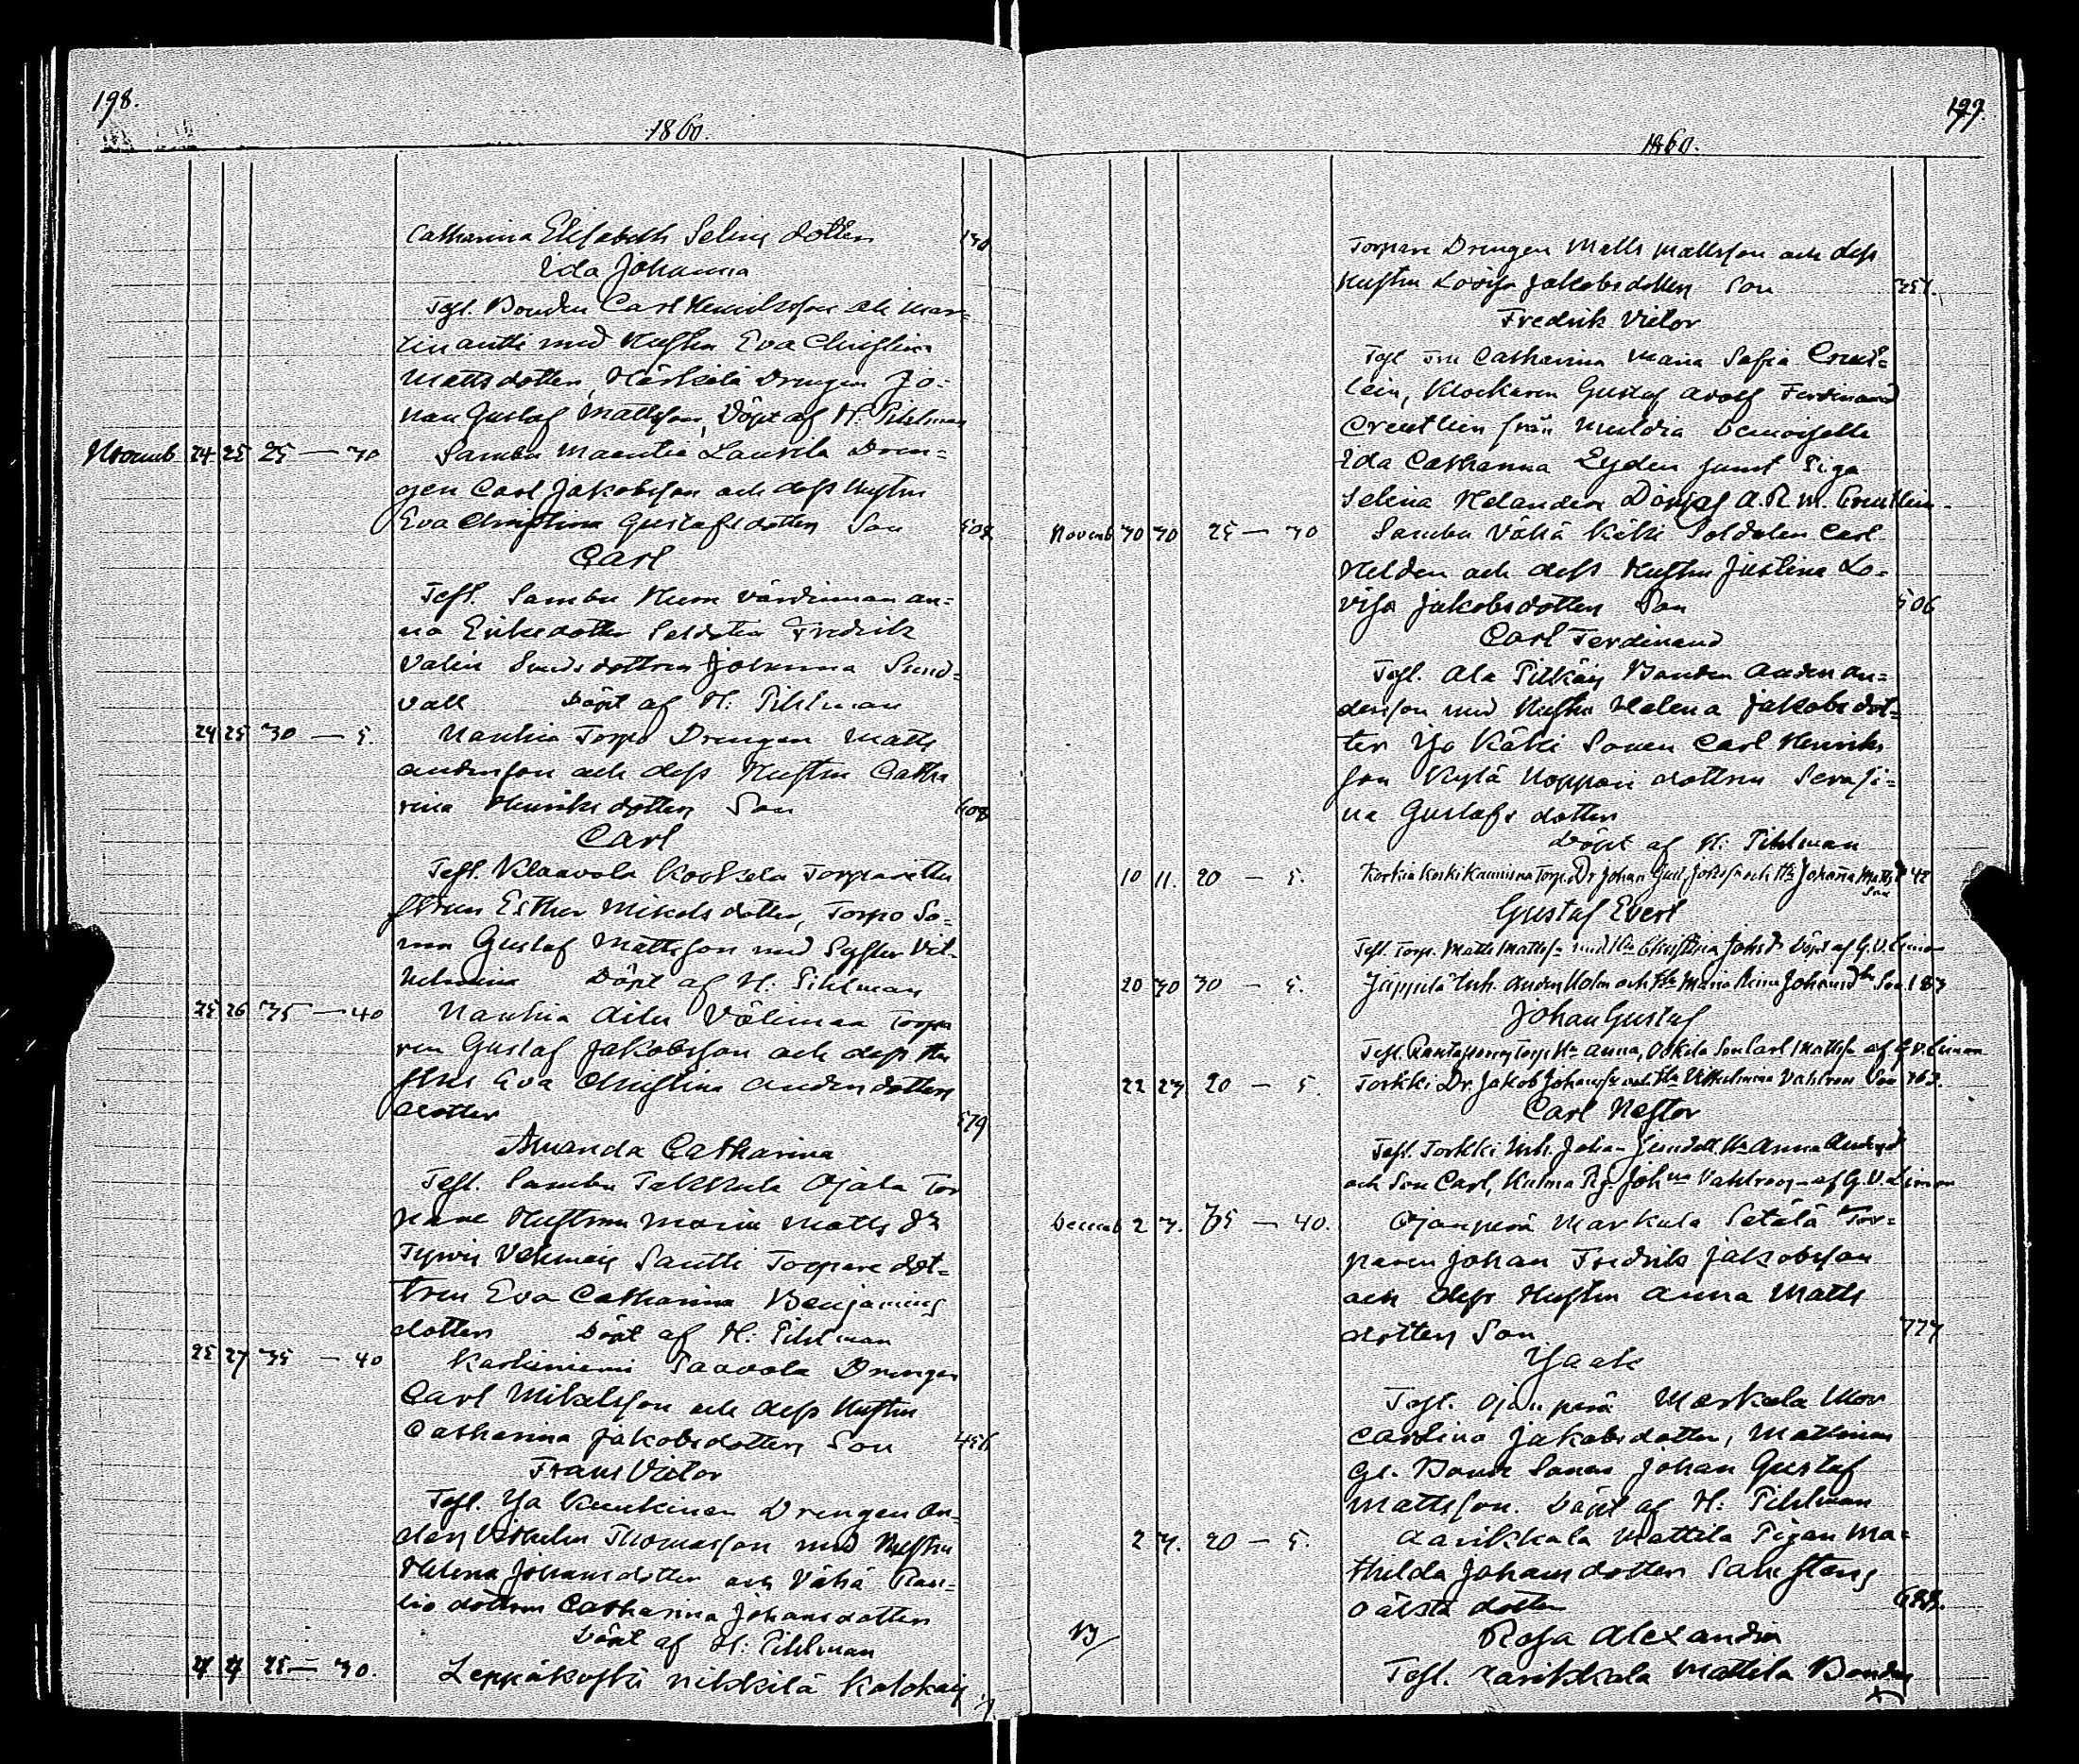 198.
1860.
Catharina Elisabeth Selins dotter 190
Ida Johanna
Tefl. Bonden Carl Henriksson
med Hustru Eva Christina
Mattsdotter, Härkälä Drengen Jo-
han Gustaf Mattsson, Döpt af H: Pihlman
Novemb 24 25 25 — 30 Sambu Maentie Laurila Dren-
gen Carl Jakobsson och dess Hustru
Eva Christina Gustafsdotter Son 502
Carl
Tefl. Sambu Värdinnan An-
na Eriksdotter Soldaten Fredrik
Valin dottren Johanna Sund-
vall Döpt af H: Pihlman
24 25 30 — 5. Nauhia Torpo Drengen Matts
Andersson och dess Hustru Catha
rina Henriksdotter Son 608
Carl
Tefl. Klaavola Koskela Torpare Hu
strun Esther Mikelsdotter, Torpo So-
nen Gustaf Mattsson med Syster Vil-
helmina Döpt af H: Pihlman
25 26 35 — 40 Nauhia Äilu Välimaa Torpa
ren Gustaf Jakobsson och dess Hu
stru Eva Christina Andersdotter
dotter 579
Amanda Catharina
Tefl. Sambu Takkula Ojala Tor
pare Hustrun Maria Matts dr
Vehmais Santti Torpare dot-
tren Eva Catharina Benjamins
dotter Döpt af H: Pihlman
25 27 35 — 40 Karhiniemi Paavola Drengen
Carl Mikelsson och dess Hustru
Catharina Jakobsdotter Son 456
Frans Victor
Tefl. Yso Drengen An-
ders Vilhelm Thomasson med Hustru
Helena Johansdotter och Vähä
dottren Catharina Johansdotter
Döpt af H: Pihlman
25 — 30. Leppäkoski Nikkilä
199.
1860.
Torpare Drengen Matts Mattsson och dess
Hustru Lovisa Jakobsdotter Son 351.
Fredrik Victor
Tefl. Fru Catharina Maria Sofia Creut-
lein, Klockaren Gustaf Adolf Ferdinand
Creutlein från Demoiselle
Ida Catharina Eyden samt Piga
Selina Helander Döpt af A. R. M. Creutlein.
Novemb 30 30 25 — 30 Sambu Vähä Käki Soldaten Carl
Helden och dess Hustru Justina Lo-
visa Jakobsdotter Son 506
Carl Ferdinand
Tefl. Ala Pitkäis Bonden Anders An-
dersson med Hustru Helena Jakobsdot-
ter Yso Käki Sonen Carl Henriks
son Kylä dottren Serafi-
na Gustafs dotter
Döpt af H: Pihlman
10 11. 20 — 5. Dr Johan Gust. och Hu Johanna Matts d 42
Son
Gustaf Evert
Tefl. Torp. Matts Matts med Hu Christina Johs dr Döpt af G. V. Limon
20 30 30 — 5. Jäppilä Inh. Anders Holm och Hu Maria Johans dtr Son 183
Johan Gustaf
Tefl. Torp. Hu Anna, Son Carl Matts af G. V. Limon
22 23 20 — 5. Torkki Dr. Jakob Johans och Hu Vilhelmina Vahlroos Son 163.
Carl Nestor
Tefl. Torkki Inh. Hu Anna Anders d
och Son Carl, Pig. Joh:na Vahlroos af G. V. Limon
Decemb 2 3. 35 — 40. Ojanperä Markula Setälä Tor-
paren Johan Fredrik Jakobsson
och dess Hustru Anna Matts
dotter Son 727
Ysaak
Tefl. Ojanperä Markula Mor
Carolina Jakobsdotter,
Bonde Sonen Johan Gustaf
Mattsson. Döpt af H: Pihlman
2 3. 20 — 5. Rarikkala Mattila Pigan Ma-
thilda Johansdotter Salsténs
oäkta dotter 688.
Rosa Alexandra
Tefl. Rarikkala Mattila Bonden